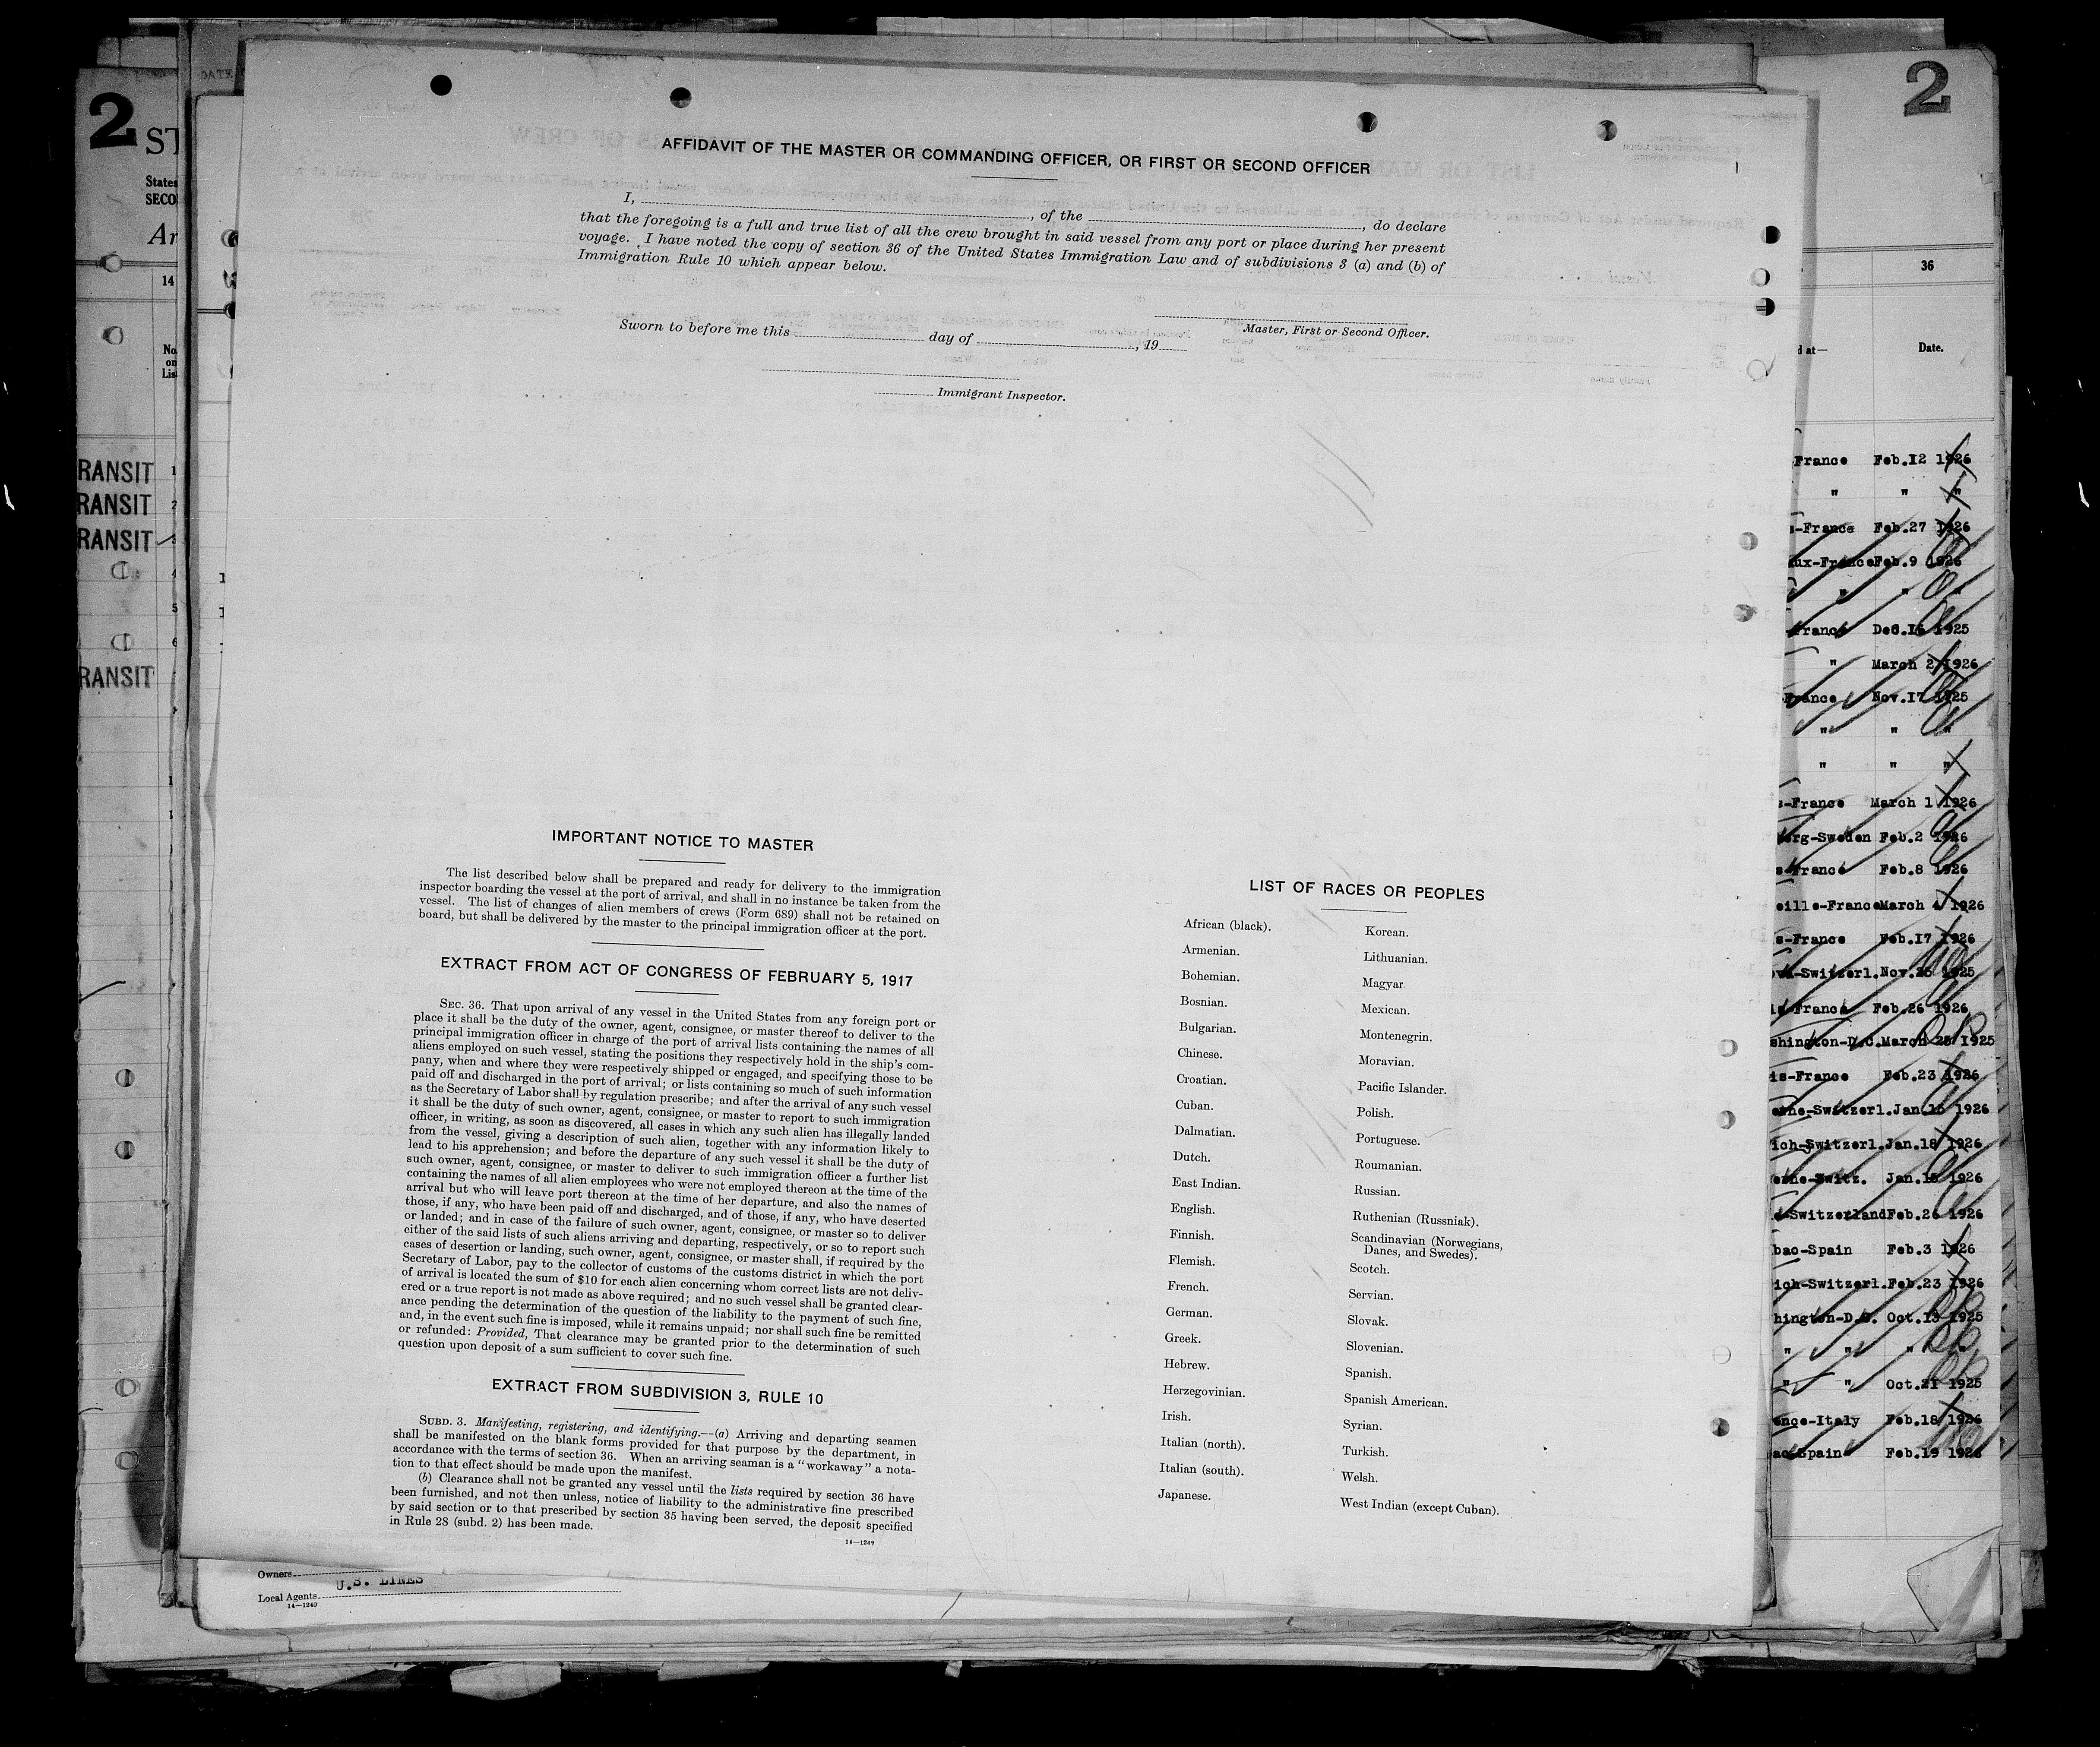 2
2
ST
States
SECO
Ar
14
No.
on
List
RANSIT
RANSIT
RANSIT
RANSIT
1
2
3
4
5
6
AFFIDAVIT OF THE MASTER OR COMMANDING OFFICER, OR FIRST OR SECOND OFFICER
I, , of the , do declare
that the foregoing is a full and true list of all the crew brought in said vessel from any port or place during her present
voyage. I have noted the copy of section 36 of the United States Immigration Law and of subdivisions 3 (a) and (b) of
Immigration Rule 10 which appear below.
Master, First or Second Officer.
Sworn to before me this day of , 19
Immigrant Inspector.
IMPORTANT NOTICE TO MASTER
The list described below shall be prepared and ready for delivery to the immigration
inspector boarding the vessel at the port of arrival, and shall in no instance be taken from the
vessel. The list of changes of alien members of crews (Form 689) shall not be retained on
board, but shall be delivered by the master to the principal immigration officer at the port.
EXTRACT FROM ACT OF CONGRESS OF FEBRUARY 5, 1917
SEC. 36. That upon arrival of any vessel in the United States from any foreign port or
place it shall be the duty of the owner, agent, consignee, or master thereof to deliver to the
principal immigration officer in charge of the port of arrival lists containing the names of all
aliens employed on such vessel, stating the positions they respectively hold in the ship's com-
pany, when and where they were respectively shipped or engaged, and specifying those to be
paid off and discharged in the port of arrival; or lists containing so much of such information
as the Secretary of Labor shall by regulation prescribe; and after the arrival of any such vessel
it shall be the duty of such owner, agent, consignee, or master to report to such immigration
officer, in writing, as soon as discovered, all cases in which any such alien has illegally landed
from the vessel, giving a description of such alien, together with any information likely to
lead to his apprehension; and before the departure of any such vessel it shall be the duty of
such owner, agent, consignee, or master to deliver to such immigration officer a further list
containing the names of all alien employees who were not employed thereon at the time of the
arrival but who will leave port thereon at the time of her departure, and also the names of
those, if any, who have been paid off and discharged, and of those, if any, who have deserted
or landed; and in case of the failure of such owner, agent, consignee, or master so to deliver
either of the said lists of such aliens arriving and departing, respectively, or so to report such
cases of desertion or landing, such owner, agent, consignee, or master shall, if required by the
Secretary of Labor, pay to the collector of customs of the customs district in which the port
of arrival is located the sum of $10 for each alien concerning whom correct lists are not deliv-
ered or a true report is not made as above required; and no such vessel shall be granted clear-
ance pending the determination of the question of the liability to the payment of such fine,
and, in the event such fine is imposed, while it remains unpaid; nor shall such fine be remitted
or refunded: Provided, That clearance may be granted prior to the determination of such
question upon deposit of a sum sufficient to cover such fine.
EXTRACT FROM SUBDIVISION 3, RULE 10
SUBD. 3. Manifesting, registering, and identifying.—(a) Arriving and departing seamen
shall be manifested on the blank forms provided for that purpose by the department, in
accordance with the terms of section 36. When an arriving seaman is a "workaway" a nota-
tion to that effect should be made upon the manifest.
(b) Clearance shall not be granted any vessel until the lists required by section 36 have
been furnished, and not then unless, notice of liability to the administrative fine prescribed
by said section or to that prescribed by section 35 having been served, the deposit specified
in Rule 28 (subd. 2) has been made.
14—1249
LIST OF RACES OR PEOPLES
African (black).
Armenian.
Bohemian.
Bosnian.
Bulgarian.
Chinese.
Croatian.
Cuban.
Dalmatian.
Dutch.
East Indian.
English.
Finnish.
Flemish.
French.
German.
Greek.
Hebrew.
Herzegovinian.
Irish.
Italian (north).
Italian (south).
Japanese.
Korean.
Lithuanian.
Magyar.
Mexican.
Montenegrin.
Moravian.
Pacific Islander.
Polish.
Portuguese.
Roumanian.
Russian.
Ruthenian (Russniak).
Scandinavian (Norwegians,
Danes, and Swedes).
Scotch.
Servian.
Slovak.
Slovenian.
Spanish.
Spanish American.
Syrian.
Turkish.
Welsh.
West Indian (except Cuban).
Owners
Local Agents U.S. LINES
14—1240
36
d at— Date.
France Feb.12 1926
" " "
s-France Feb.27 1926
ux-France Feb.9 1926
" " "
France Dec.16 1925
" March 2 1926
France Nov.17 1925
" " "
" " "
s-France March 1 1926
erg-Sweden Feb.2 1926
s-France Feb.8 1926
eille-France March 4 1926
s-France Feb.17 1926
va-Switzerl. Nov.25 1925
is-France Feb.26 1926
shington-D.C. March 25 1925
is-France Feb.23 1926
erne-Switzerl. Jan.15 1926
ich-Switzerl. Jan.18 1926
erne-Switz. Jan.15 1926
e-Switzerland Feb.26 1926
bao-Spain Feb.3 1926
ich-Switzerl. Feb.23 1926
hington-D.C. Oct.13 1925
" " " "
" " Oct.21 1925
ence-Italy Feb.18 1926
ao-Spain Feb.19 1926